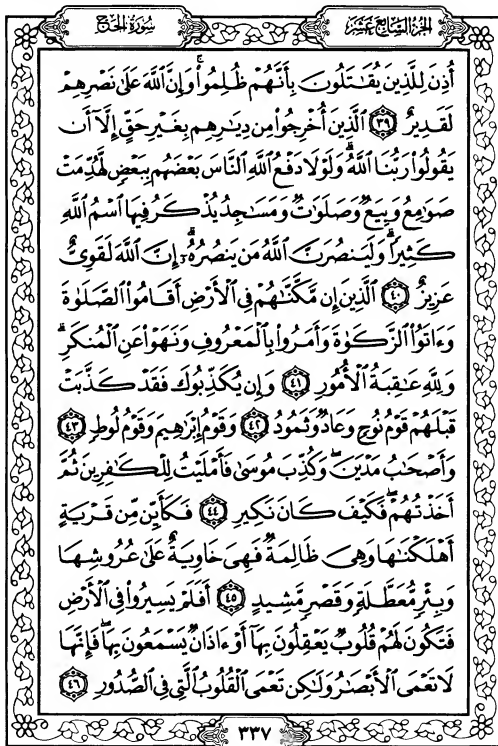 سُورَةُ الحَجّ
الجزء السابع عشر
أُذِنَ لِلَّذِينَ يُقَٰتَلُونَ بِأَنَّهُمْ ظُلِمُوا۟ ۚ وَإِنَّ ٱللَّهَ عَلَىٰ نَصْرِهِمْ
لَقَدِيرٌ ٣٩ ٱلَّذِينَ أُخْرِجُوا۟ مِن دِيَٰرِهِم بِغَيْرِ حَقٍّ إِلَّآ أَن
يَقُولُوا۟ رَبُّنَا ٱللَّهُ ۗ وَلَوْلَا دَفْعُ ٱللَّهِ ٱلنَّاسَ بَعْضَهُم بِبَعْضٍ لَّهُدِّمَتْ
صَوَٰمِعُ وَبِيَعٌ وَصَلَوَٰتٌ وَمَسَٰجِدُ يُذْكَرُ فِيهَا ٱسْمُ ٱللَّهِ
كَثِيرًا ۗ وَلَيَنصُرَنَّ ٱللَّهُ مَن يَنصُرُهُۥٓ ۗ إِنَّ ٱللَّهَ لَقَوِىٌّ
عَزِيزٌ ٤٠ ٱلَّذِينَ إِن مَّكَّنَّٰهُمْ فِى ٱلْأَرْضِ أَقَامُوا۟ ٱلصَّلَوٰةَ
وَءَاتَوُا۟ ٱلزَّكَوٰةَ وَأَمَرُوا۟ بِٱلْمَعْرُوفِ وَنَهَوْا۟ عَنِ ٱلْمُنكَرِ ۗ
وَلِلَّهِ عَٰقِبَةُ ٱلْأُمُورِ ٤١ وَإِن يُكَذِّبُوكَ فَقَدْ كَذَّبَتْ
قَبْلَهُمْ قَوْمُ نُوحٍ وَعَادٌ وَثَمُودُ ٤٢ وَقَوْمُ إِبْرَٰهِيمَ وَقَوْمُ لُوطٍ ٤٣
وَأَصْحَٰبُ مَدْيَنَ ۖ وَكُذِّبَ مُوسَىٰ فَأَمْلَيْتُ لِلْكَٰفِرِينَ ثُمَّ
أَخَذْتُهُمْ ۖ فَكَيْفَ كَانَ نَكِيرِ ٤٤ فَكَأَيِّن مِّن قَرْيَةٍ
أَهْلَكْنَٰهَا وَهِىَ ظَالِمَةٌ فَهِىَ خَاوِيَةٌ عَلَىٰ عُرُوشِهَا
وَبِئْرٍ مُّعَطَّلَةٍ وَقَصْرٍ مَّشِيدٍ ٤٥ أَفَلَمْ يَسِيرُوا۟ فِى ٱلْأَرْضِ
فَتَكُونَ لَهُمْ قُلُوبٌ يَعْقِلُونَ بِهَآ أَوْ ءَاذَانٌ يَسْمَعُونَ بِهَا ۖ فَإِنَّهَا
لَا تَعْمَى ٱلْأَبْصَٰرُ وَلَٰكِن تَعْمَى ٱلْقُلُوبُ ٱلَّتِى فِى ٱلصُّدُورِ ٤٦
٣٣٧